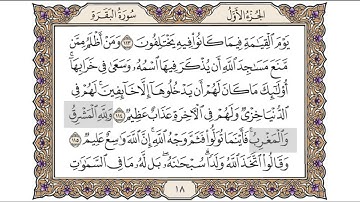 الجزء الأول
سورة البقرة
يوم القيامة فيما كانوا فيه يختلفون ١١٣ ومن أظلم ممن
منع مساجد الله أن يذكر فيها اسمه وسعى في خرابها
أولئك ما كان لهم أن يدخلوها إلا خائفين لهم في
الدنيا خزي ولهم في الآخرة عذاب عظيم ١١٤ ولله المشرق
والمغرب فأينما تولوا فثم وجه الله إن الله واسع عليم ١١٥
وقالوا اتخذ الله ولدا سبحانه بل له ما في السماوات
١٨